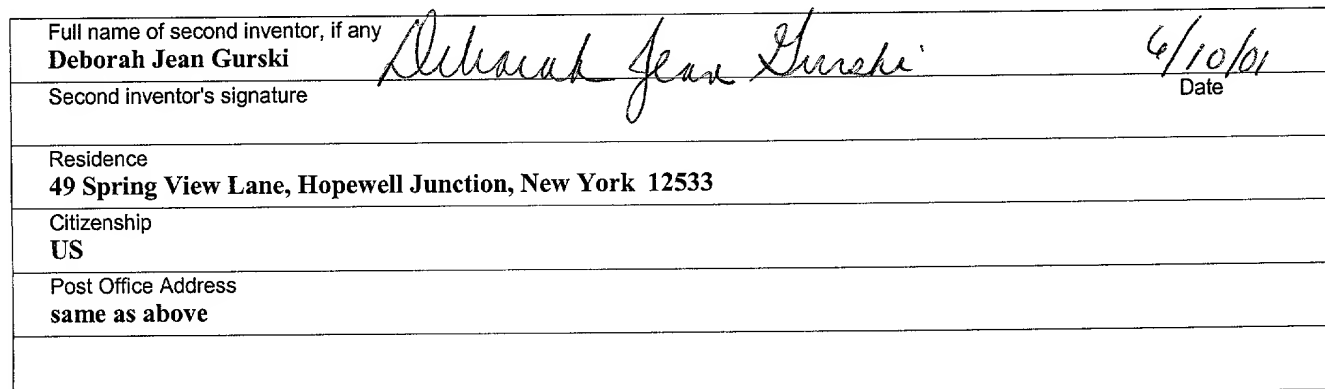 Full name of second inventor, if any
Deborah Jean Gurski Deborah Jean Gurski 6/10/01
Second inventor's signature Date
Residence
49 Spring View Lane, Hopewell Junction, New York 12533
Citizenship
US
Post Office Address
same as above